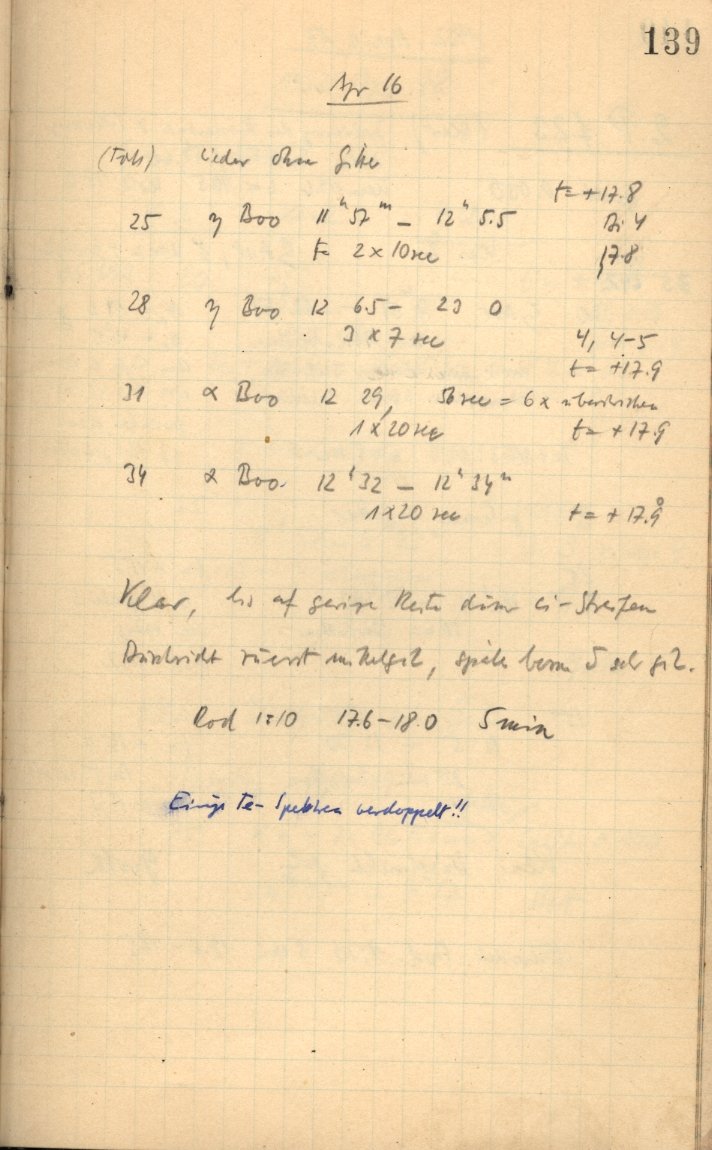 139
Apr 16
(Forts) wieder ohne Gitter
t = +17.8
25 η Boo 11ʰ 57ᵐ – 12ʰ 5.5 4
t = 2 x 10 sec 17.8
28 η Boo 12 6.5 – 23 0
3 x 7 sec 4, 4-5
t = +17.9
31 α Boo 12 29, 56 sec = 6 x
1 x 20 sec t = +17.9
34 α Boo. 12ʰ 32 – 12ʰ 34ᵐ
1 x 20 sec t = + 17.9
Klar, bis auf geringe Reste dünner Ci-Streifen
Durchsicht zuerst mittelgut, später sehr gut.
Rod 1:10 17.6–18.0 5 min
Einige Fe-Spektren verdoppelt!!